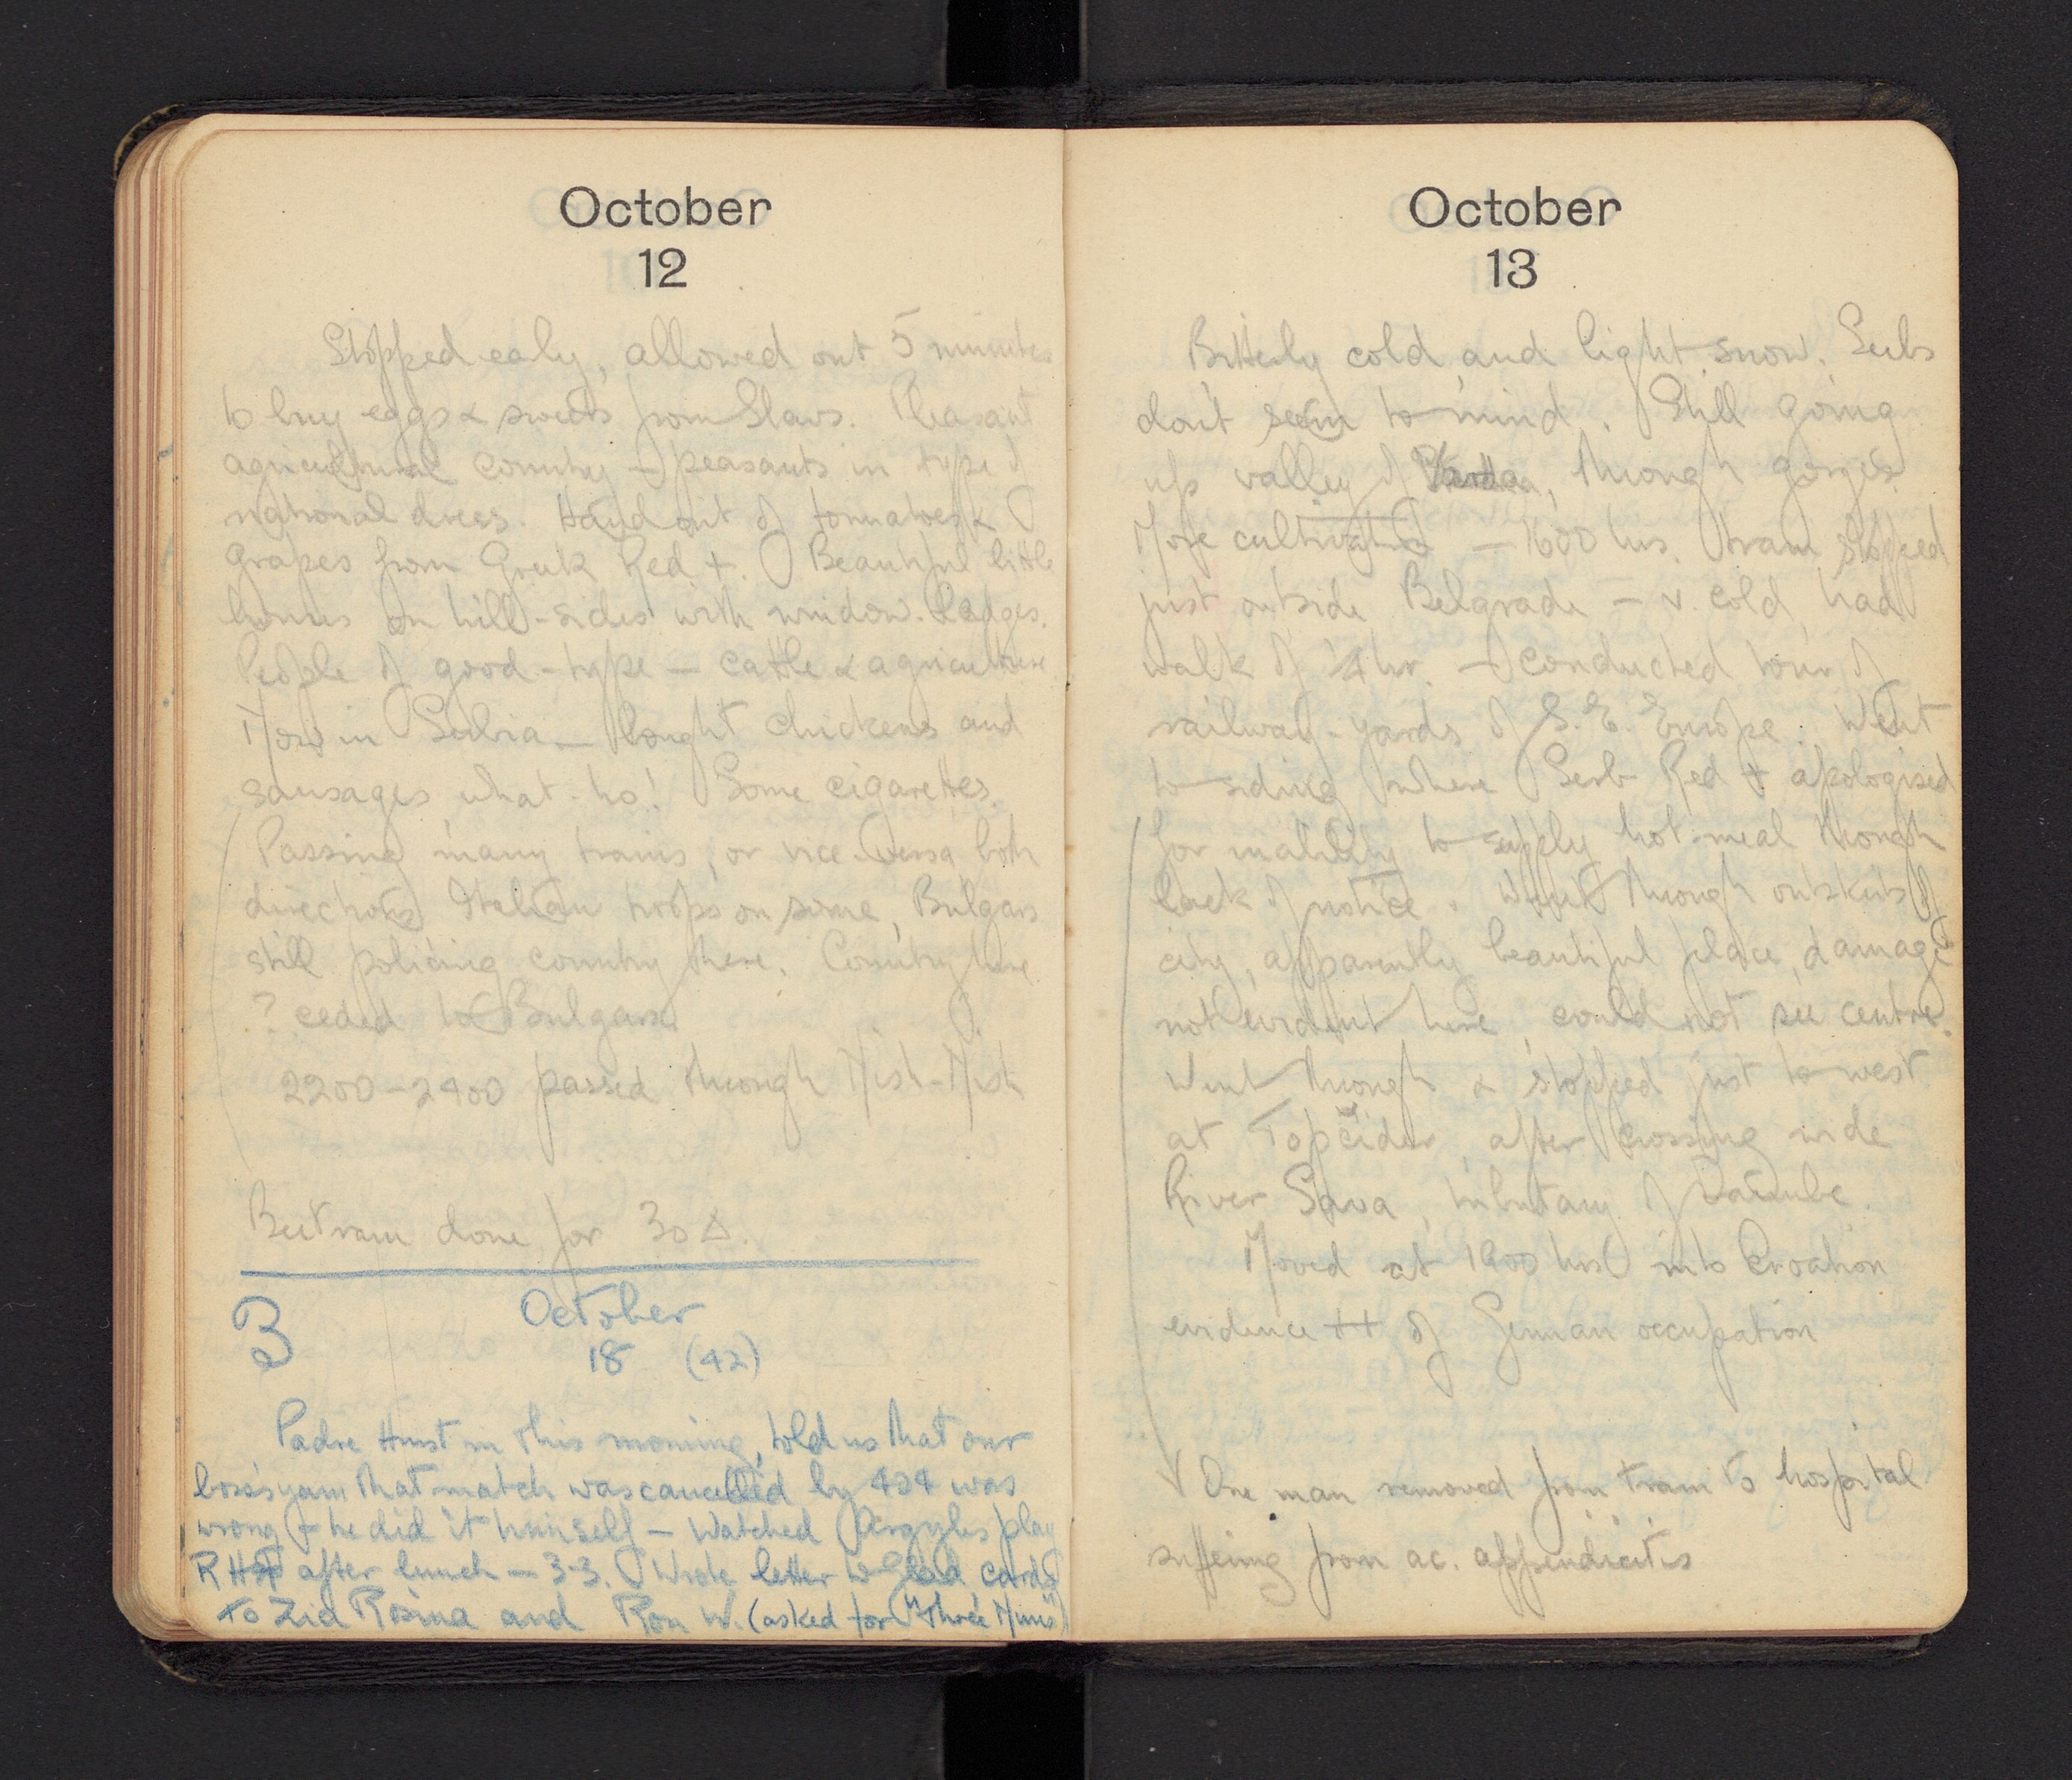 October
12
Stopped ealy, allowed out 5 minutes
to buy eggs & sweets from Slavs. Pleasant
agricultural country — peasants in type of
national dress. Hand out of tomatoes &
grapes from Greek Red +. Beautiful little
houses on hill-sides with window-ledges.
People of good-type — cattle & agriculture
Now in Serbia — bought chickens and
sausages what-ho! Some cigarettes.
Passing many trains, or vice-versa both
directions Italian troops on some, Bulgars
still policing country here. Country here
? ceded to Bulgars.
2200-2400 passed through Nish-Nish
done for 30 Δ.
B October
18 (42)
Padre Hurst in this morning, told us that our
boss's yarn that match was cancelled by 404 was
wrong & he did it himself — Watched Argyles play
after lunch — 3-3. Wrote letter to cards
to Zia Rosina and Ron W. (asked for "Three Nuns")
October
13
Bitterly cold and light snow. Serbs
don't seem to mind. Still going
up valley of through gorges.
More cultivation — 1600 hrs. train stopped
just outside Belgrade — v. cold, had
walk of ¼ hr. — conducted tour of
railway-yards of S.E. Europe. Went
to siding where Serb Red + apologised
for inability to supply hot meal through
lack of notice. Went through outskirts of
city, apparently beautiful place, damage
not evident here, could not see centre.
Went through & stopped just to west
at Topcider, after crossing wide
River Sava, tributary of Danube.
Moved at 1900 hrs into Croation
evidence ++ of German occupation
One man removed from train to hospital
suffering from ac. appendicitis